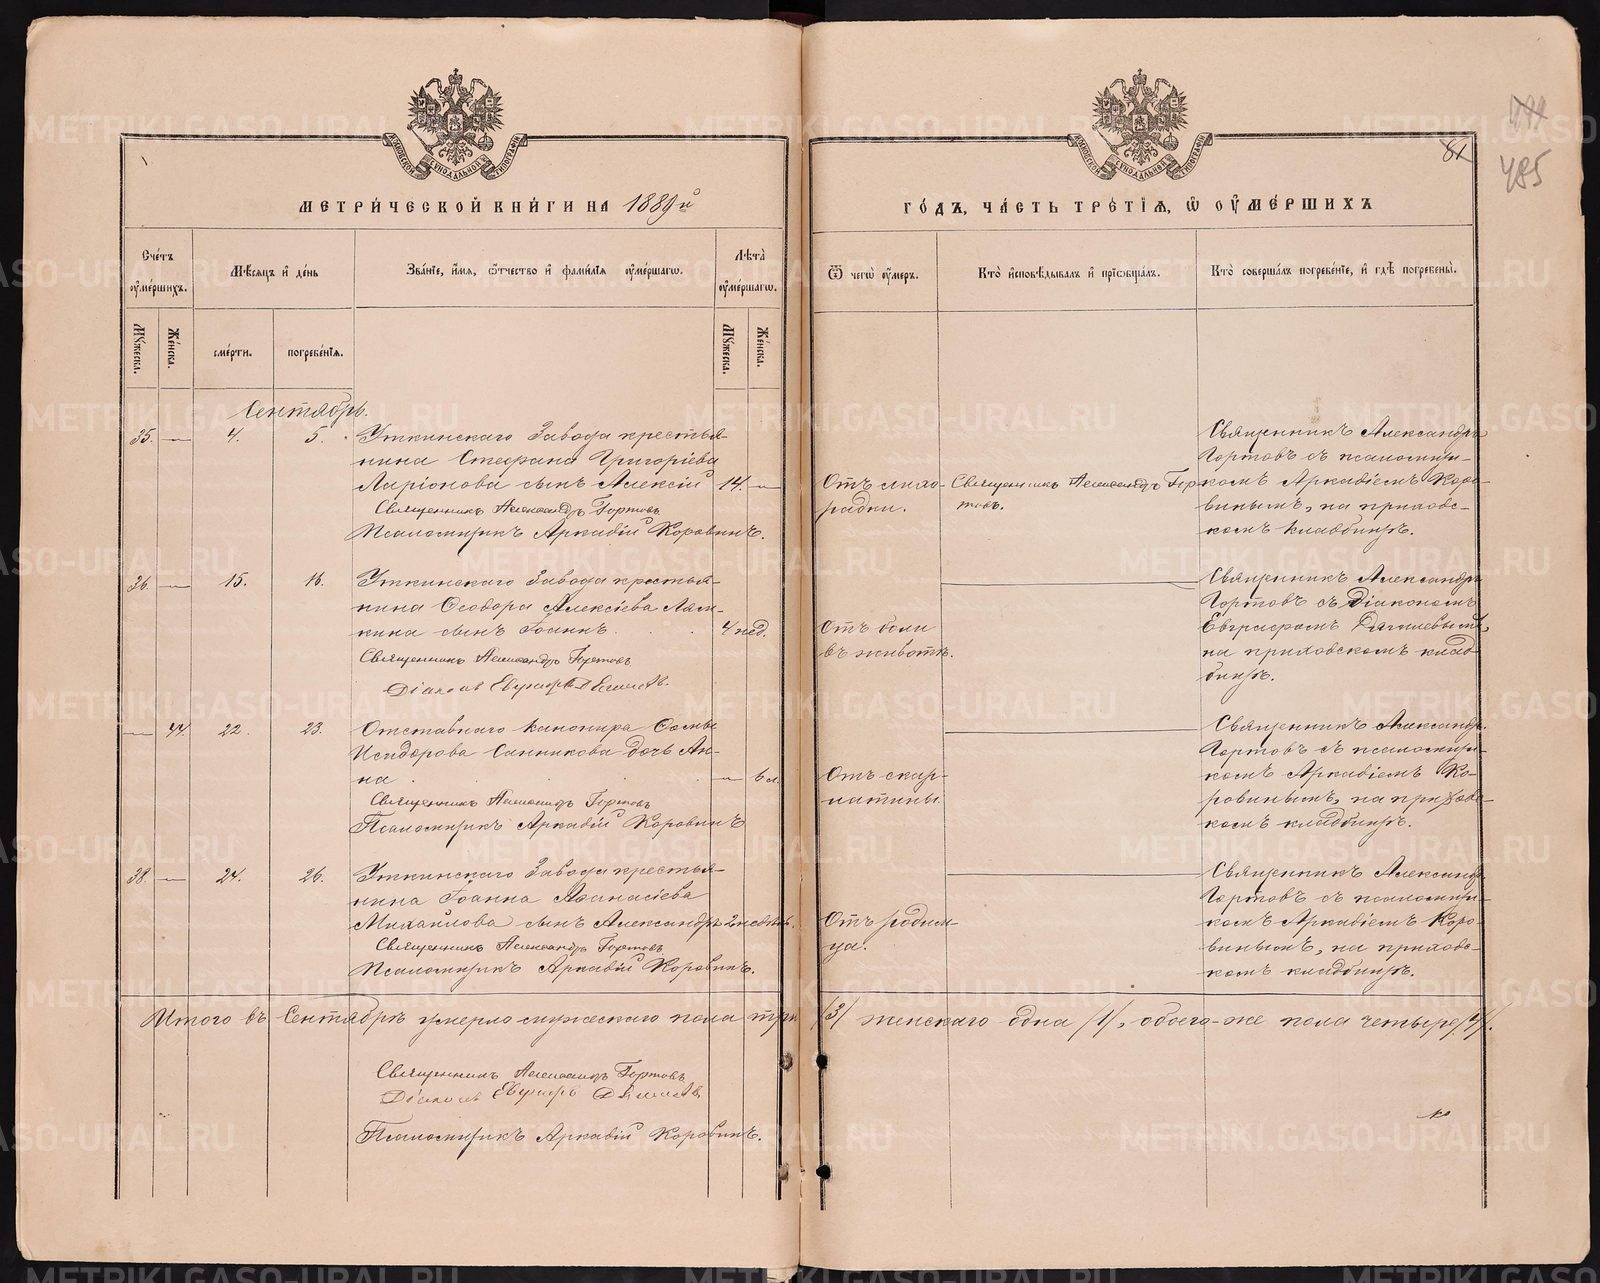 МЕТРИ́ЧЕСКОЙ КНИ́ГИ НА 1889й
ГО́ДЪ, ЧА́СТЬ ТРЕ́ТІѦ, Ѿ ОУ҆МЕ́РШИХЪ
МОСКОВСКОЙ СѴНОДАЛЬНОЙ ТИПОГРАФІИ
МОСКОВСКОЙ СѴНОДАЛЬНОЙ ТИПОГРАФІИ
81
485
Сче́тъ оу҆ме́ршихъ.
Мѣ́сяцъ и҆ де́нь
Зва́нїе, и҆́мя, ѻ҆́тчество и҆ фамилїя оу҆ме́ршагѡ.
Лѣ́та оу҆ме́ршагѡ.
Ѿ чегѡ̀ оу҆́меръ.
Кто̀ и҆сповѣ́дывалъ и҆ прїѡбща́лъ.
Кто̀ соверша́лъ погребе́нїе, и҆ гдѣ̀ погребены̀.
Му́жеска.
Же́нска.
сме́рти.
погребе́нїя.
Му́жеска.
Же́нска.
Сентябрь.
35. — 4. 5. Уткинскаго Завода крестья-
нина Стефана Григоріева
Ларіонова сынъ Алексій 14. —
Священникъ Александръ Гортовъ
Псаломщикъ Аркадій Коровинъ.
Отъ лихо-
радки.
Священникъ Александръ Гор-
товъ.
Священникъ Александръ
Гортовъ съ псаломщи-
комъ Аркадіемъ Коро-
винымъ, на приходс-
комъ кладбищѣ.
36. — 15. 16. Уткинскаго Завода крестья-
нина Ѳеодора Алексіева Лям-
кина сынъ Іоаннъ. 4 нед.
Священникъ Александръ Гортовъ
Діаконъ Евграфъ
Отъ боли
въ животѣ.
Священникъ Александръ
Гортовъ съ Діакономъ
Евграфомъ
на приходскомъ клад-
бищѣ.
— 44. 22. 23. Отставнаго канонира Ѳомы
Исидорова Санникова дочь Ан-
на. — 6 л.
Священникъ Александръ Гортовъ
Псаломщикъ Аркадій Коровинъ
Отъ скар-
латины.
Священникъ Александръ
Гортовъ съ псаломщи-
комъ Аркадіемъ Ко-
ровинымъ, на приходс-
комъ кладбищѣ.
38. — 24. 26. Уткинскаго Завода крестья-
нина Іоанна Аѳанасіева
Михайлова сынъ Александръ 2 недѣль.
Священникъ Александръ Гортовъ
Псаломщикъ Аркадій Коровинъ.
Отъ родим-
ца.
Священникъ Александръ
Гортовъ съ псаломщи-
комъ Аркадіемъ Коро-
винымъ, на приходс-
комъ кладбищѣ.
Итого въ Сентябрѣ умерло мужескаго пола три /3/ женскаго одна /1/, обоего-же пола четыре /4/.
Священникъ Александръ Гортовъ
Діаконъ Евграфъ
Псаломщикъ Аркадій Коровинъ.
METRIKI.GASO-URAL.RU